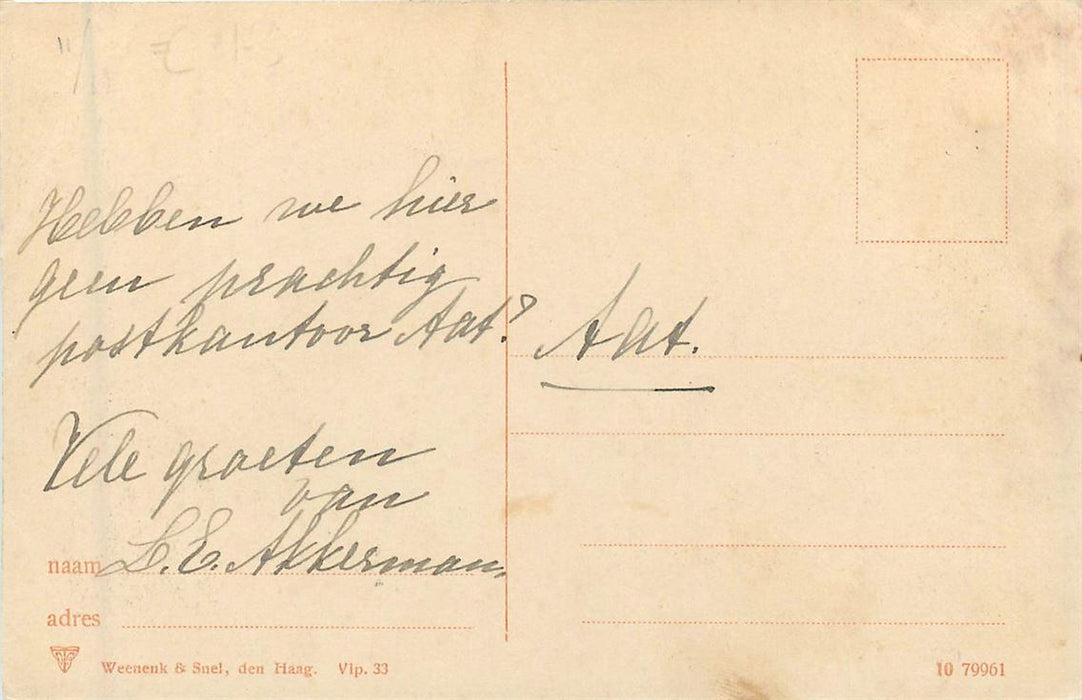 Hebben we hier
geen prachtig
postkantoor Aat?
Vele groeten
van
naam L.E. Akkerman.
adres
Weenenk & Snel, den Haag. Vip. 33
Aat.
10 79961